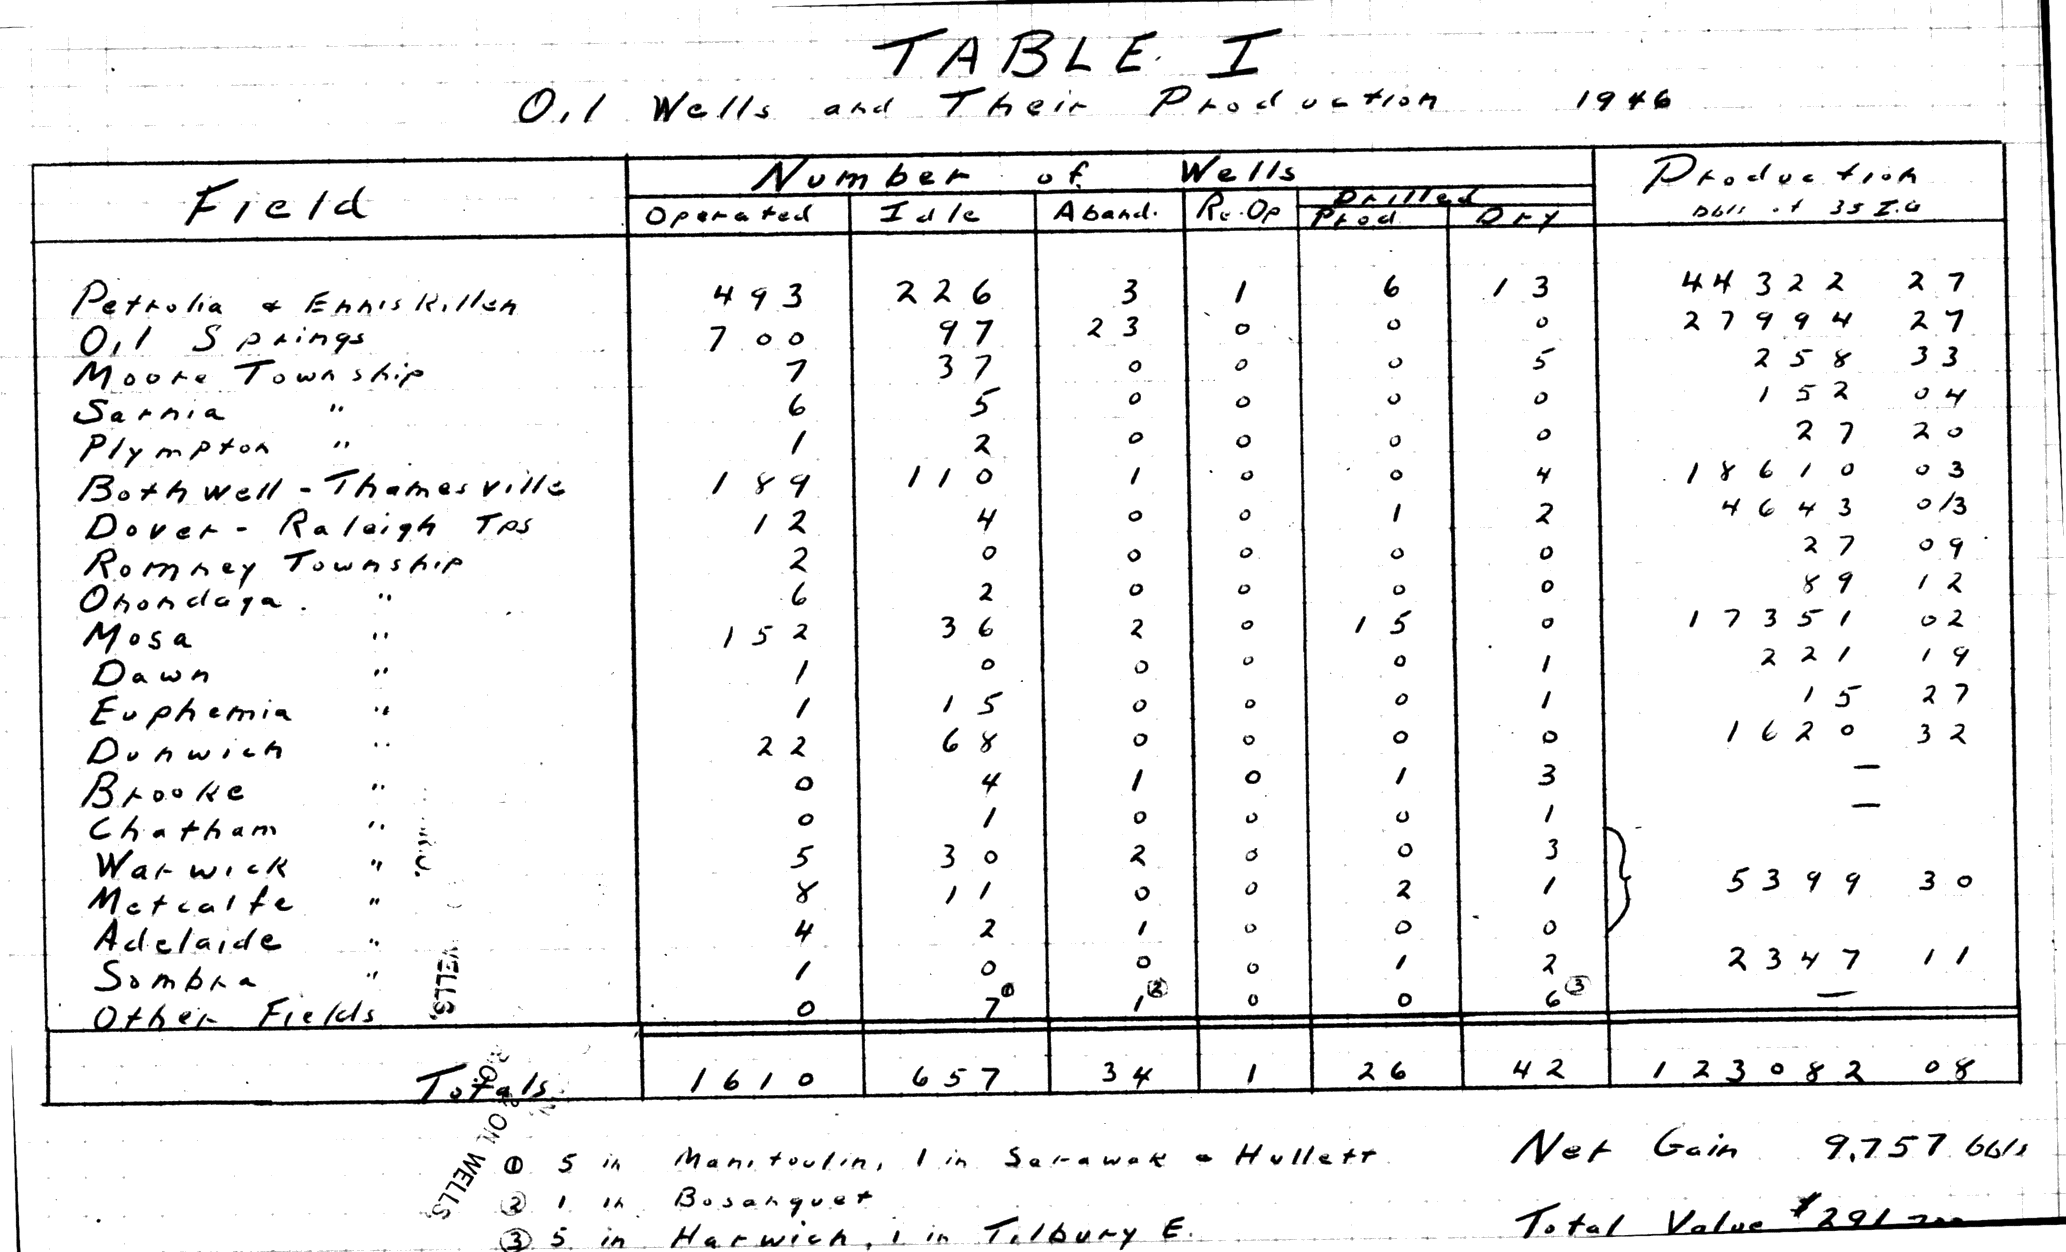 TABLE I
Oil Wells and Their Production 1946
Field Number of Wells Production
Operated Idle Aband. Re-Op Drilled bbls of 35 I.G
Prod Dry
Petrolia & Enniskillen 493 226 3 1 6 13 44322 27
Oil Springs 700 97 23 0 0 0 27994 27
Moore Township 7 37 0 0 0 5 258 33
Sarnia " 6 5 0 0 0 0 152 04
Plympton " 1 2 0 0 0 0 27 20
Bothwell - Thamesville 189 110 1 0 0 4 18610 03
Dover - Raleigh Tps 12 4 0 0 1 2 4643 013
Romney Township 2 0 0 0 0 0 27 09
Onondaga " 6 2 0 0 0 0 89 12
Mosa " 152 36 2 0 15 0 17351 02
Dawn " 1 0 0 0 0 1 221 19
Euphemia " 1 15 0 0 0 1 15 27
Dunwich " 22 68 0 0 0 0 1620 32
Brooke " 0 4 1 0 1 3 —
Chatham " 0 1 0 0 0 1 —
Warwick " 5 30 2 0 0 3
Metcalfe " 8 11 0 0 2 1 5399 30
Adelaide " 4 2 1 0 0 0
Sombra " 1 0 0 0 1 2 2347 11
Other Fields 0 7① 1② 0 0 6③ —
Totals 1610 657 34 1 26 42 123082 08
① 5 in Manitoulin, 1 in Sarawak & Hullett
② 1 in Bosanquet
③ 5 in Harwich, 1 in Tilbury E.
Net Gain 9,757 bbls
Total Value $291
WELLS,
ON WELLS